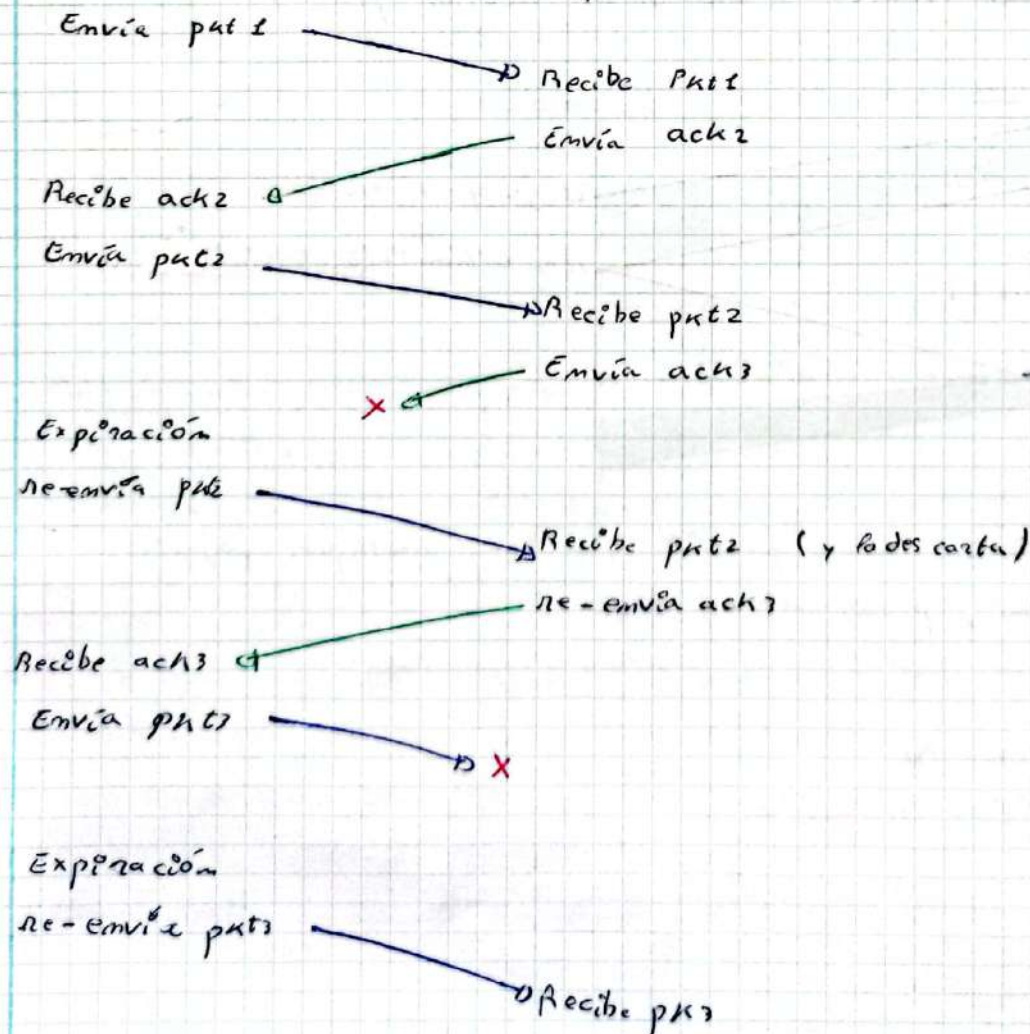 Envía pkt 1
Recibe Pkt1
Envía ack2
Recibe ack2
Envía pkt2
Recibe pkt2
Envía ack3
X
Expiración
re-envía pkt2
Recibe pkt2 (y lo descarta)
re-envía ack3
Recibe ack3
Envía pkt3
X
Expiración
re-envía pkt3
Recibe pk3